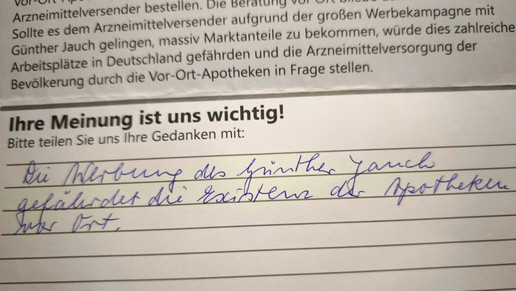 Vor-Ort-Apo
Arzneimittelversender bestellen. Die Beratung vor Ort
Sollte es dem Arzneimittelversender aufgrund der großen Werbekampagne mit
Günther Jauch gelingen, massiv Marktanteile zu bekommen, würde dies zahlreiche
Arbeitsplätze in Deutschland gefährden und die Arzneimittelversorgung der
Bevölkerung durch die Vor-Ort-Apotheken in Frage stellen.
Ihre Meinung ist uns wichtig!
Bitte teilen Sie uns Ihre Gedanken mit:
Die Werbung des Günther Jauch
gefährdet die Existenz der Apotheken
vor Ort.